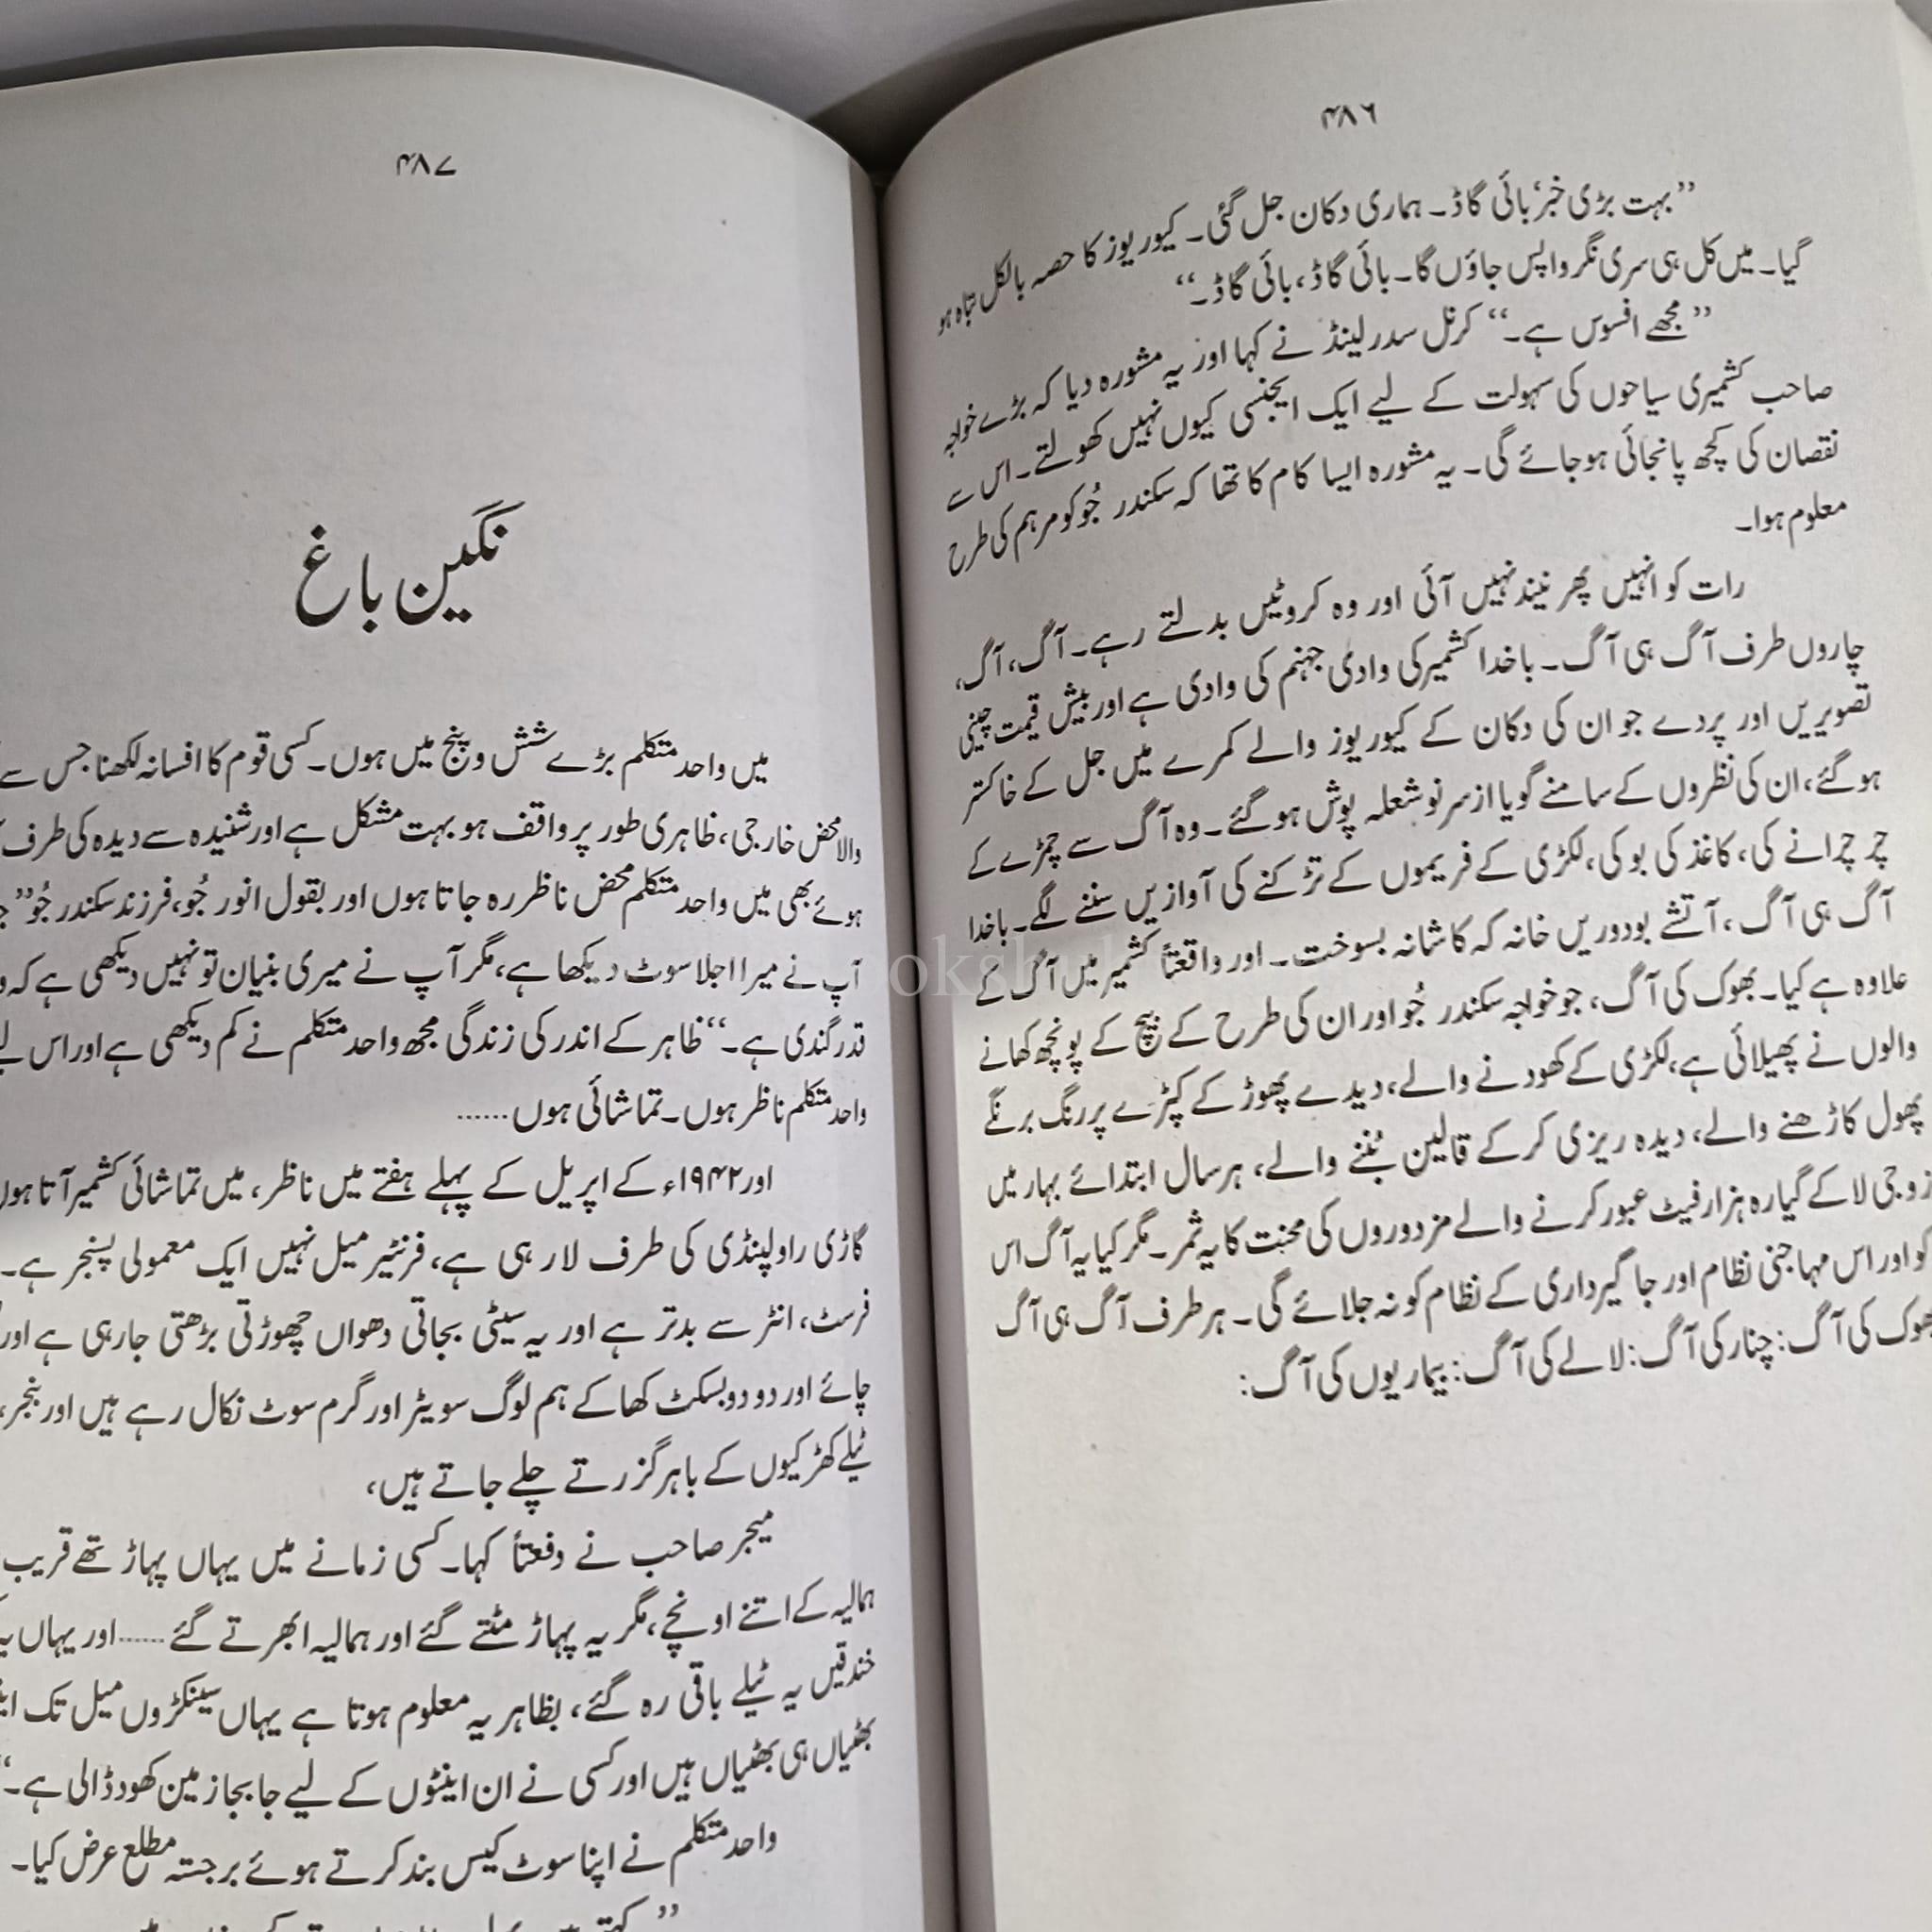 ۴۸۶
”بہت بڑی خبر‘ بائی گاڈ۔ ہماری دکان جل گئی۔ کیوریوز کا حصہ بالکل تباہ ہو
گیا۔ میں کل ہی سری نگر واپس جاؤں گا۔ بائی گاڈ، بائی گاڈ۔“
”مجھے افسوس ہے۔“ کرنل سدرلینڈ نے کہا اور یہ مشورہ دیا کہ بڑے خواجہ
صاحب کشمیری سیاحوں کی سہولت کے لیے ایک ایجنسی کیوں نہیں کھولتے۔ اس سے
نقصان کی کچھ پانجائی ہوجائے گی۔ یہ مشورہ ایسا کام کا تھا کہ سکندر جُو کو مرہم کی طرح
معلوم ہوا۔
رات کو انہیں پھر نیند نہیں آئی اور وہ کروٹیں بدلتے رہے۔ آگ، آگ،
چاروں طرف آگ ہی آگ۔ باخدا کشمیر کی وادی جہنم کی وادی ہے اور بیش قیمت چینی
تصویریں اور پردے جو ان کی دکان کے کیوریوز والے کمرے میں جل کے خاکستر
ہوگئے، ان کی نظروں کے سامنے گویا از سرِ نو شعلہ پوش ہوگئے۔ وہ آگ سے چمڑے کے
چر چرانے کی، کاغذ کی بو کی، لکڑی کے فریموں کے تڑکنے کی آوازیں سننے لگے۔ باخدا
آگ ہی آگ، آتشے بود دریں خانہ کہ کاشانہ بسوخت۔ اور واقعتاً کشمیر میں آگ کے
علاوہ ہے کیا۔ بھوک کی آگ، جو خواجہ سکندر جُو اور ان کی طرح کے بیچ کے پونچھ کھانے
والوں نے پھیلائی ہے، لکڑی کے کھودنے والے، دیدے پھوڑ کے کپڑے پر رنگ برنگے
پھول کاڑھنے والے، دیدہ ریزی کرکے قالین بُننے والے، ہر سال ابتدائے بہار میں
زوجی لا کے گیارہ ہزار فیٹ عبور کرنے والے مزدوروں کی محنت کا یہ ثمر۔ مگر کیا یہ آگ اس
کو اور اس مہاجنی نظام اور جاگیرداری کے نظام کو نہ جلائے گی۔ ہر طرف آگ ہی آگ
بھوک کی آگ: چنار کی آگ: لالے کی آگ: بیماریوں کی آگ:
۴۸۷
نگین باغ
میں واحد متکلم بڑے شش و پنج میں ہوں۔ کسی قوم کا افسانہ لکھنا جس سے
والا محض خارجی، ظاہری طور پر واقف ہو بہت مشکل ہے اور شنیدہ سے دیدہ کی طرف
ہوئے بھی میں واحد متکلم محض ناظر رہ جاتا ہوں اور بقول انور جُو، فرزند سکندر جُو”
آپ نے میرا اجلا سوٹ دیکھا ہے، مگر آپ نے میری بنیان تو نہیں دیکھی ہے کہ
قدر گندی ہے۔“ ظاہر کے اندر کی زندگی مجھ واحد متکلم نے کم دیکھی ہے اور اس
واحد متکلم ناظر ہوں۔ تماشائی ہوں ......
اور ۱۹۴۲ء کے اپریل کے پہلے ہفتے میں ناظر، میں تماشائی کشمیر آتا ہوں
گاڑی راولپنڈی کی طرف لا رہی ہے، فرنٹیر میل نہیں ایک معمولی پسنجر ہے۔
فرسٹ، انٹر سے بدتر ہے اور یہ سیٹی بجاتی دھواں چھوڑتی بڑھتی جارہی ہے اور
چائے اور دو دو بسکٹ کھا کے ہم لوگ سویٹر اور گرم سوٹ نکال رہے ہیں اور بنجر،
ٹیلے کھڑکیوں کے باہر گزرتے چلے جاتے ہیں،
میجر صاحب نے دفعتاً کہا۔ کسی زمانے میں یہاں پہاڑ تھے قریب
ہمالیہ کے اتنے اونچے، مگر یہ پہاڑ مٹتے گئے اور ہمالیہ ابھرتے گئے ...... اور یہاں
خندقیں یہ ٹیلے باقی رہ گئے، بظاہر یہ معلوم ہوتا ہے یہاں سینکڑوں میل تک
بھٹیاں ہی بھٹیاں ہیں اور کسی نے ان اینٹوں کے لیے جابجا زمین کھود ڈالی ہے۔“
واحد متکلم نے اپنا سوٹ کیس بند کرتے ہوئے برجستہ مطلع عرض کیا۔